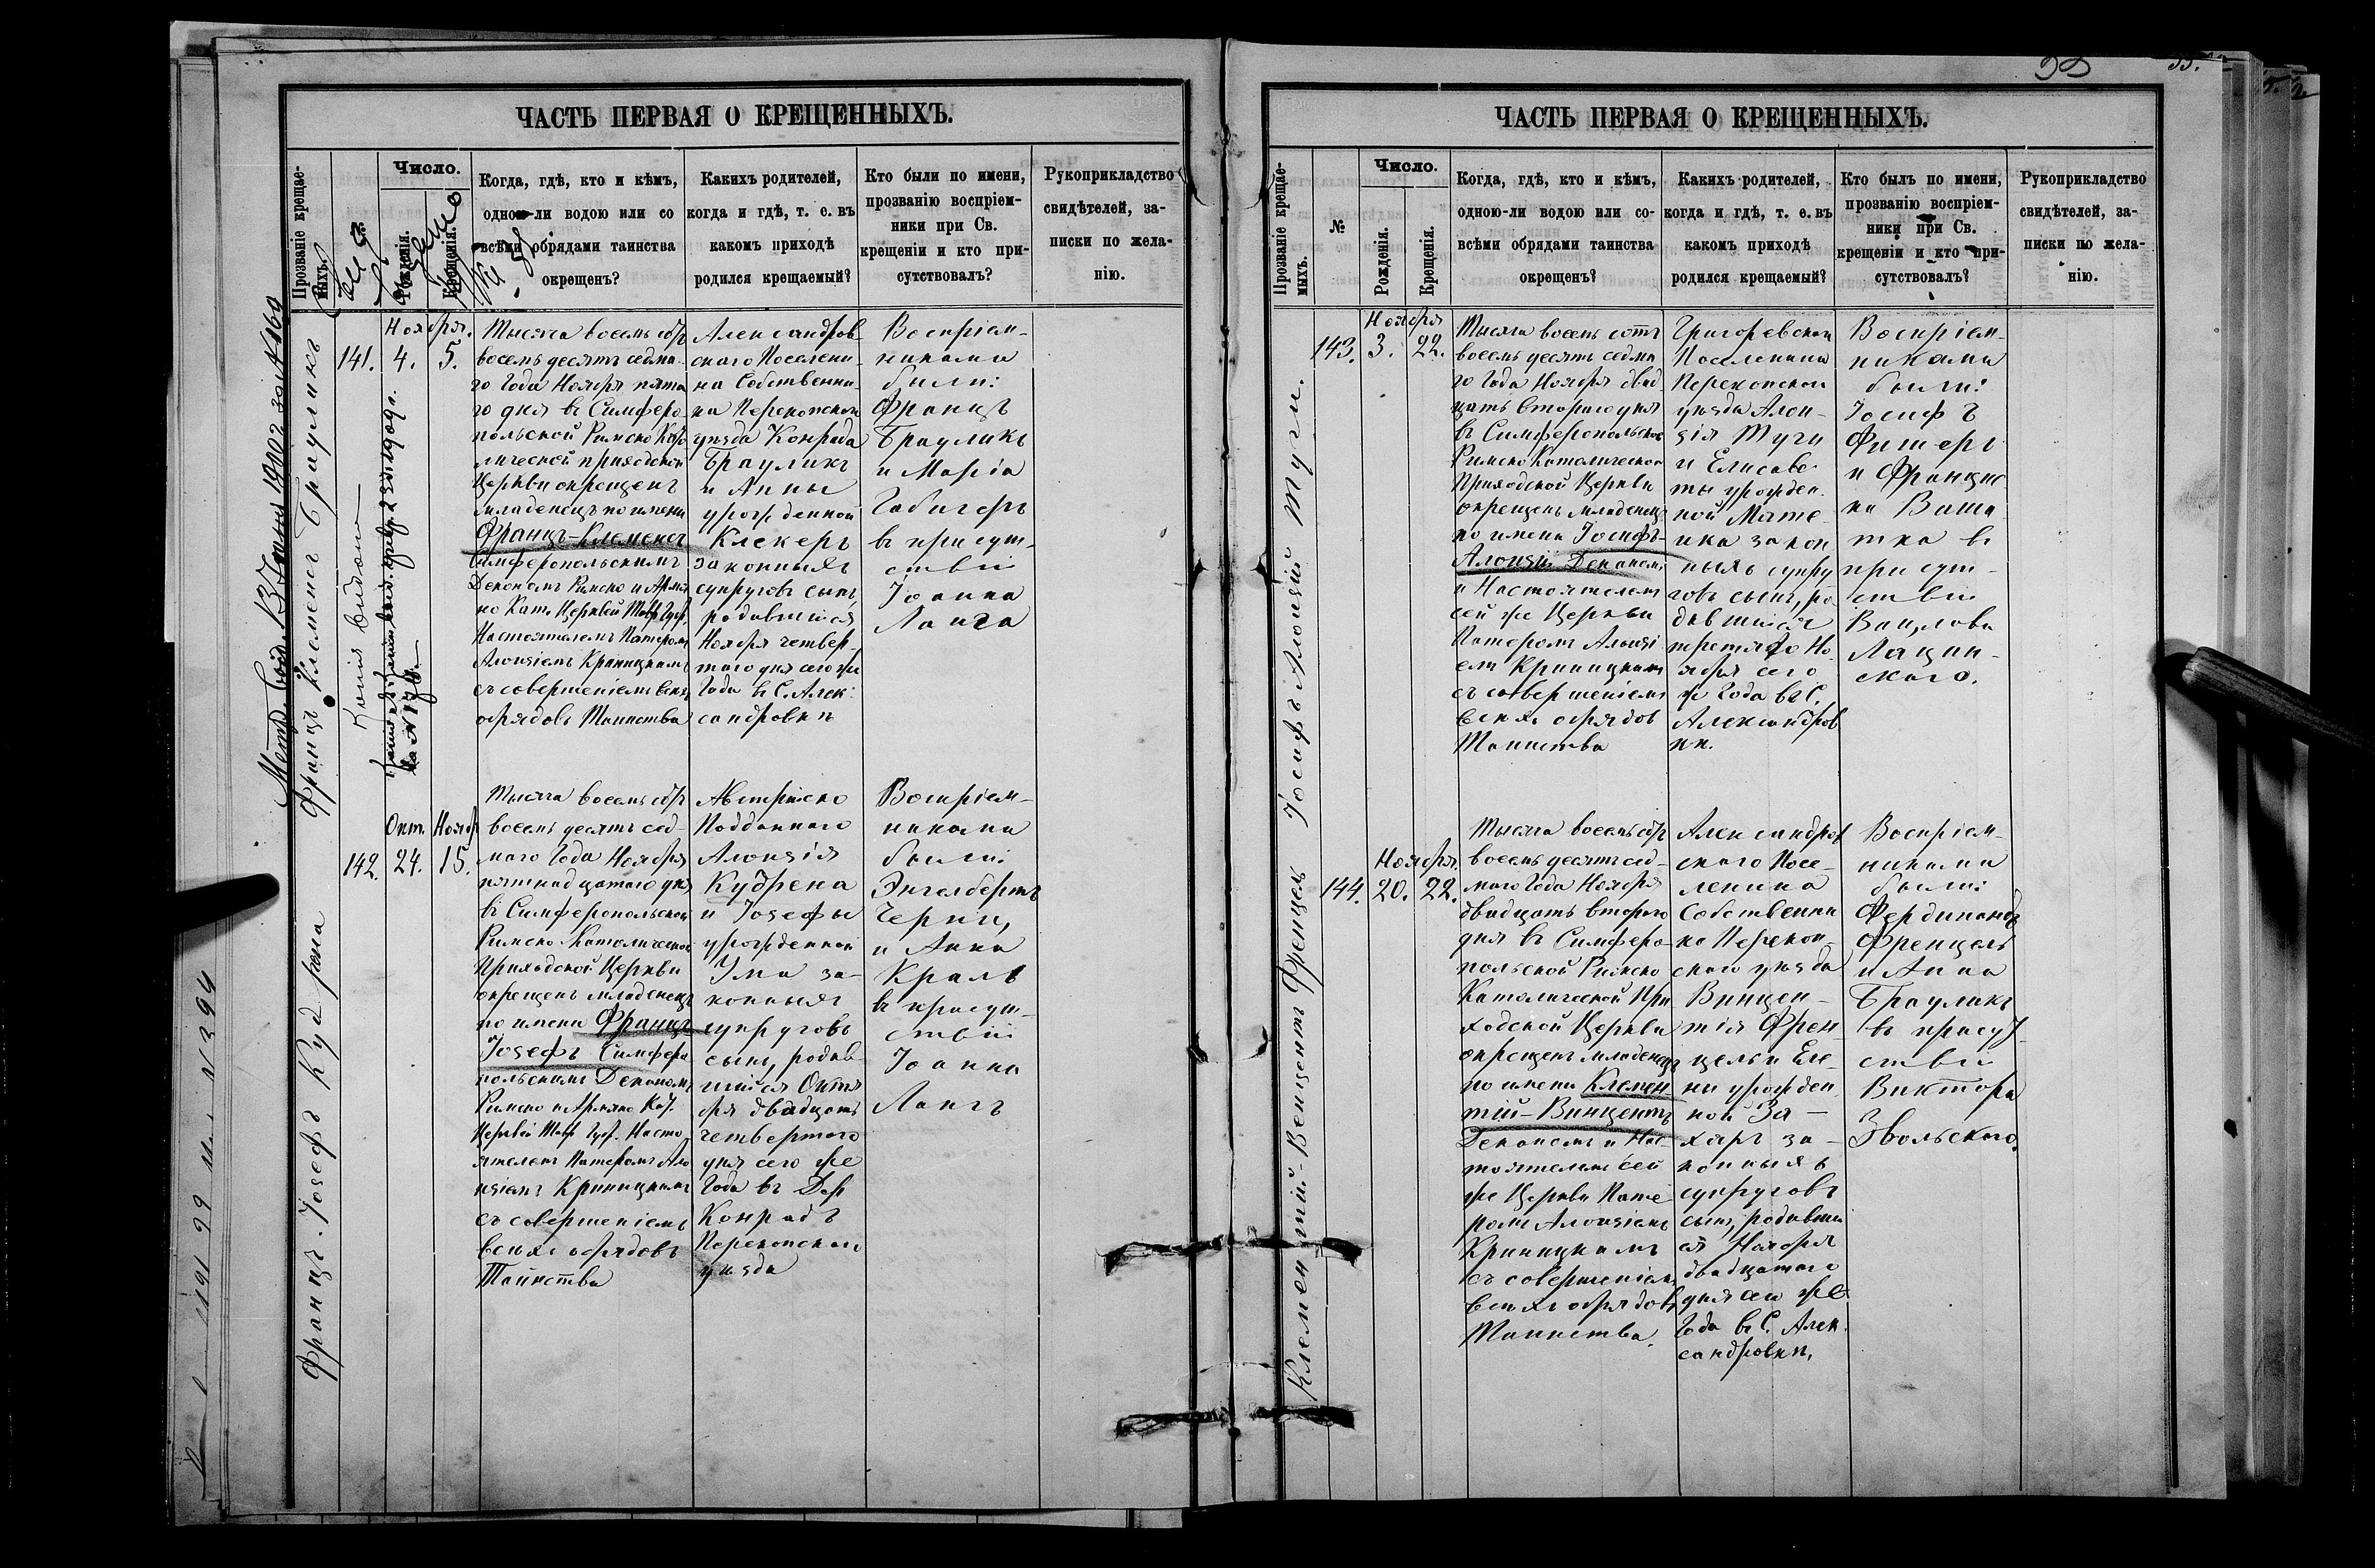 ЧАСТЬ ПЕРВАЯ О КРЕЩЕННЫХЪ.
Прозваніе крещае-
мыхъ.
Число.
Рожденія.
Крещенія.
Когда, гдѣ, кто и кѣмъ,
одною-ли водою или со
всѣми обрядами таинства
окрещенъ?
Какихъ родителей,
когда и гдѣ, т. е. въ
какомъ приходѣ
родился крещаемый?
Кто были по имени,
прозванію воспріем-
ники при Св.
крещеніи и кто при-
сутствовалъ?
Рукоприкладство
свидѣтелей, за-
писки по жела-
нію.
Францъ Клеменсъ Брауликъ
Копія выдана
141.
Ноября.
4.
5.
Тысяча восемьсотъ
восемьдесятъ седма-
го Года Ноября пята
го дня въ Симферо-
польской Римско Като
лической приходской
Церкви окрещенъ
младенецъ по имени
Францъ-Клеменсъ
Симферопольскимъ
Деканомъ Римско и Армя
но Кат. Церквей Тавр. Губ.
Настоятелемъ Патеромъ
Алоизіемъ Криницкимъ
съ совершеніемъ всѣхъ
обрядовъ Таинства
Александров-
скаго Поселени-
на Собственни-
ка Перекопскаго
уѣзда Конрада
Брауликъ
и Анны
урожденной
Клекеръ
законныхъ
супруговъ сынъ,
родившійся
Ноября четвер-
таго дня сего же
Года въ С. Алек-
сандровкѣ
Воспріем-
никами
были:
Францъ
Брауликъ
и Марія
Габигеръ
въ присут-
ствіи
Іоанна
Ланга
Францъ-Іозефъ Кудрена
142.
Окт.
24.
Ноябр
15.
Тысяча восемьсотъ
восемьдесятъ сед-
маго Года Ноября
пятнадцатаго дня
въ Симферопольской
Римско-Католической
Приходской Церкви
окрещенъ младенецъ
по имени Францъ
Іозефъ Симферо
польскимъ Деканомъ
Римско и Армяно Кат.
Церквей Тавр. Губ. Насто
ятелемъ Патеромъ Ало
изіемъ Криницкимъ
съ совершеніемъ
всѣхъ обрядовъ
Таинства
Австрійско
Подданнаго
Алоизія
Кудрена
и Іозефы
урожденной
Ума за-
конныхъ
супруговъ
сынъ, родив-
шійся Октя
бря двадцать
четвертаго
дня сего же
Года въ Дер
Конрадъ
Перекопскаго
уѣзда
Воспріем-
никами
были:
Энгелбертъ
Черни,
и Анна
Краль
въ присут-
ствіи
Іоанна
Лангъ
ЧАСТЬ ПЕРВАЯ О КРЕЩЕННЫХЪ.
Прозваніе крещае-
мыхъ.
№
Число.
Рожденія.
Крещенія.
Когда, гдѣ, кто и кѣмъ,
одною-ли водою или со-
всѣми обрядами таинства
окрещенъ?
Какихъ родителей,
когда и гдѣ, т. е. въ
какомъ приходѣ
родился крещаемый?
Кто былъ по имени,
прозванію воспріем-
ники при Св.
крещеніи и кто при-
сутствовалъ?
Рукоприкладство
свидѣтелей, за-
писки по жела-
нію.
Іосифъ Алоизій Туги.
143.
Ноября
3.
22.
Тысяча восемьсотъ
восемьдесятъ седма
го Года Ноября двад
цать втораго дня
въ Симферопольской
Римско Католической
Приходской Церкви
окрещенъ младенецъ
по имени Іосифъ-
Алоизій Деканомъ
и Настоятелемъ
сей же Церкви
Патеромъ Алоизі
емъ Криницкимъ
съ совершеніемъ
всѣхъ обрядовъ
Таинства
Григоревской
Поселенина
Перекопской
уѣзда Алои-
зія Туги
и Елисаве-
ты урожден-
ной Мате-
ика закон
ныхъ супру
говъ сынъ, ро
дившійся
третяго Но-
ября сего
же Года въ С.
Александров
кѣ.
Воспріем-
никами
были:
Іосифъ
Фишеръ
и Францис
ка Вата
тка въ
присут-
ствіи
Вацлова
Лацин-
скаго.
Клементій-Венцентъ Френцель
144.
Ноября.
20.
22.
Тысяча восемьсотъ
восемьдесятъ сед-
маго Года Ноября
двадцать второго
дня въ Симферо-
польской Римско
Католической При
ходской Церкви
окрещенъ младенецъ
по имени Клемен-
тій-Винцентъ
Деканомъ и Нас-
тоятелемъ сей
же Церкви Пате
ромъ Алоизіемъ
Криницкимъ
съ совершеніемъ
всѣхъ обрядовъ
Таинства.
Александров
скаго Посе-
ленина
Собственни
ка Перекоп-
скаго уѣзда
Винцен-
тія Френ-
цель и Еле-
ны урожден
ной За-
харъ за-
конныхъ
супруговъ
сынъ, родивши
ся Ноября
двадцатаго
дня сего же
Года въ С. Алек-
сандровкѣ,
Воспріем-
никами
были:
Фердинандъ
Френцель
и Анна
Брауликъ
въ присут-
ствіи
Виктора
Звольскаго.